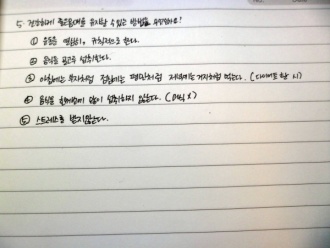 5. 건강하게 좋은몸매를 유지할 수 있는 방법은 무엇일까요?
① 운동을 열심히, 규칙적으로 한다.
② 음식을 골고루 섭취한다.
③ 아침에는 부자처럼 점심에는 평민처럼 저녁에는 거지처럼 먹는다. (다이어트 할 시)
④ 음식을 한꺼번에 많이 섭취하지 않는다. (과식 X)
⑤ 스트레스를 받지않는다.